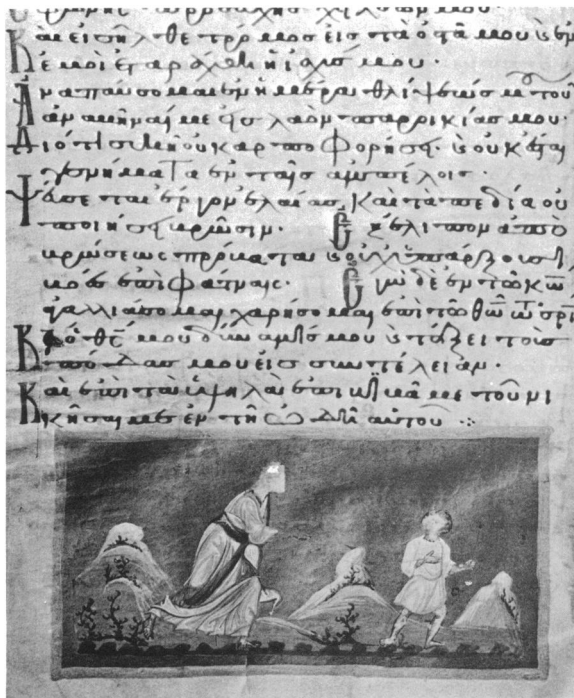 φωνῆς προσευχῆς χειλέων μου·
Καὶ εἰσῆλθε τρόμος εἰς τὰ ὀστᾶ μου καὶ ἐν
ἐμοὶ ἐταράχθη ἡ ἰσχύς μου·
Ἀναπαύσομαι ἐν ἡμέρᾳ θλίψεώς μου τοῦ
ἀναβῆναί με εἰς λαὸν παροικίας μου·
Διότι συκῆ οὐ καρποφορήσει· καὶ οὐκ ἔσται
γεννήματα ἐν ταῖς ἀμπέλοις·
Ψεύσεται ἔργον ἐλαίας· καὶ τὰ πεδία οὐ
ποιήσει βρῶσιν· Ἐξέλιπον ἀπὸ
βρώσεως πρόβατα καὶ οὐχ ὑπάρξουσι
βόες ἐπὶ φάτναις· Ἐγὼ δὲ ἐν τῷ κῷ ἀ
γαλλιάσομαι χαρήσομαι ἐπὶ τῷ θῷ τῷ σρι
Κς ὁ θς μου δύναμίς μου καὶ τάξει τοὺς
πόδας μου εἰς συντέλειαν·
Καὶ ἐπὶ τὰ ὑψηλὰ ἐπιβιβᾷ με τοῦ νι
κῆσαί με ἐν τῇ ᾠδῇ αὐτοῦ